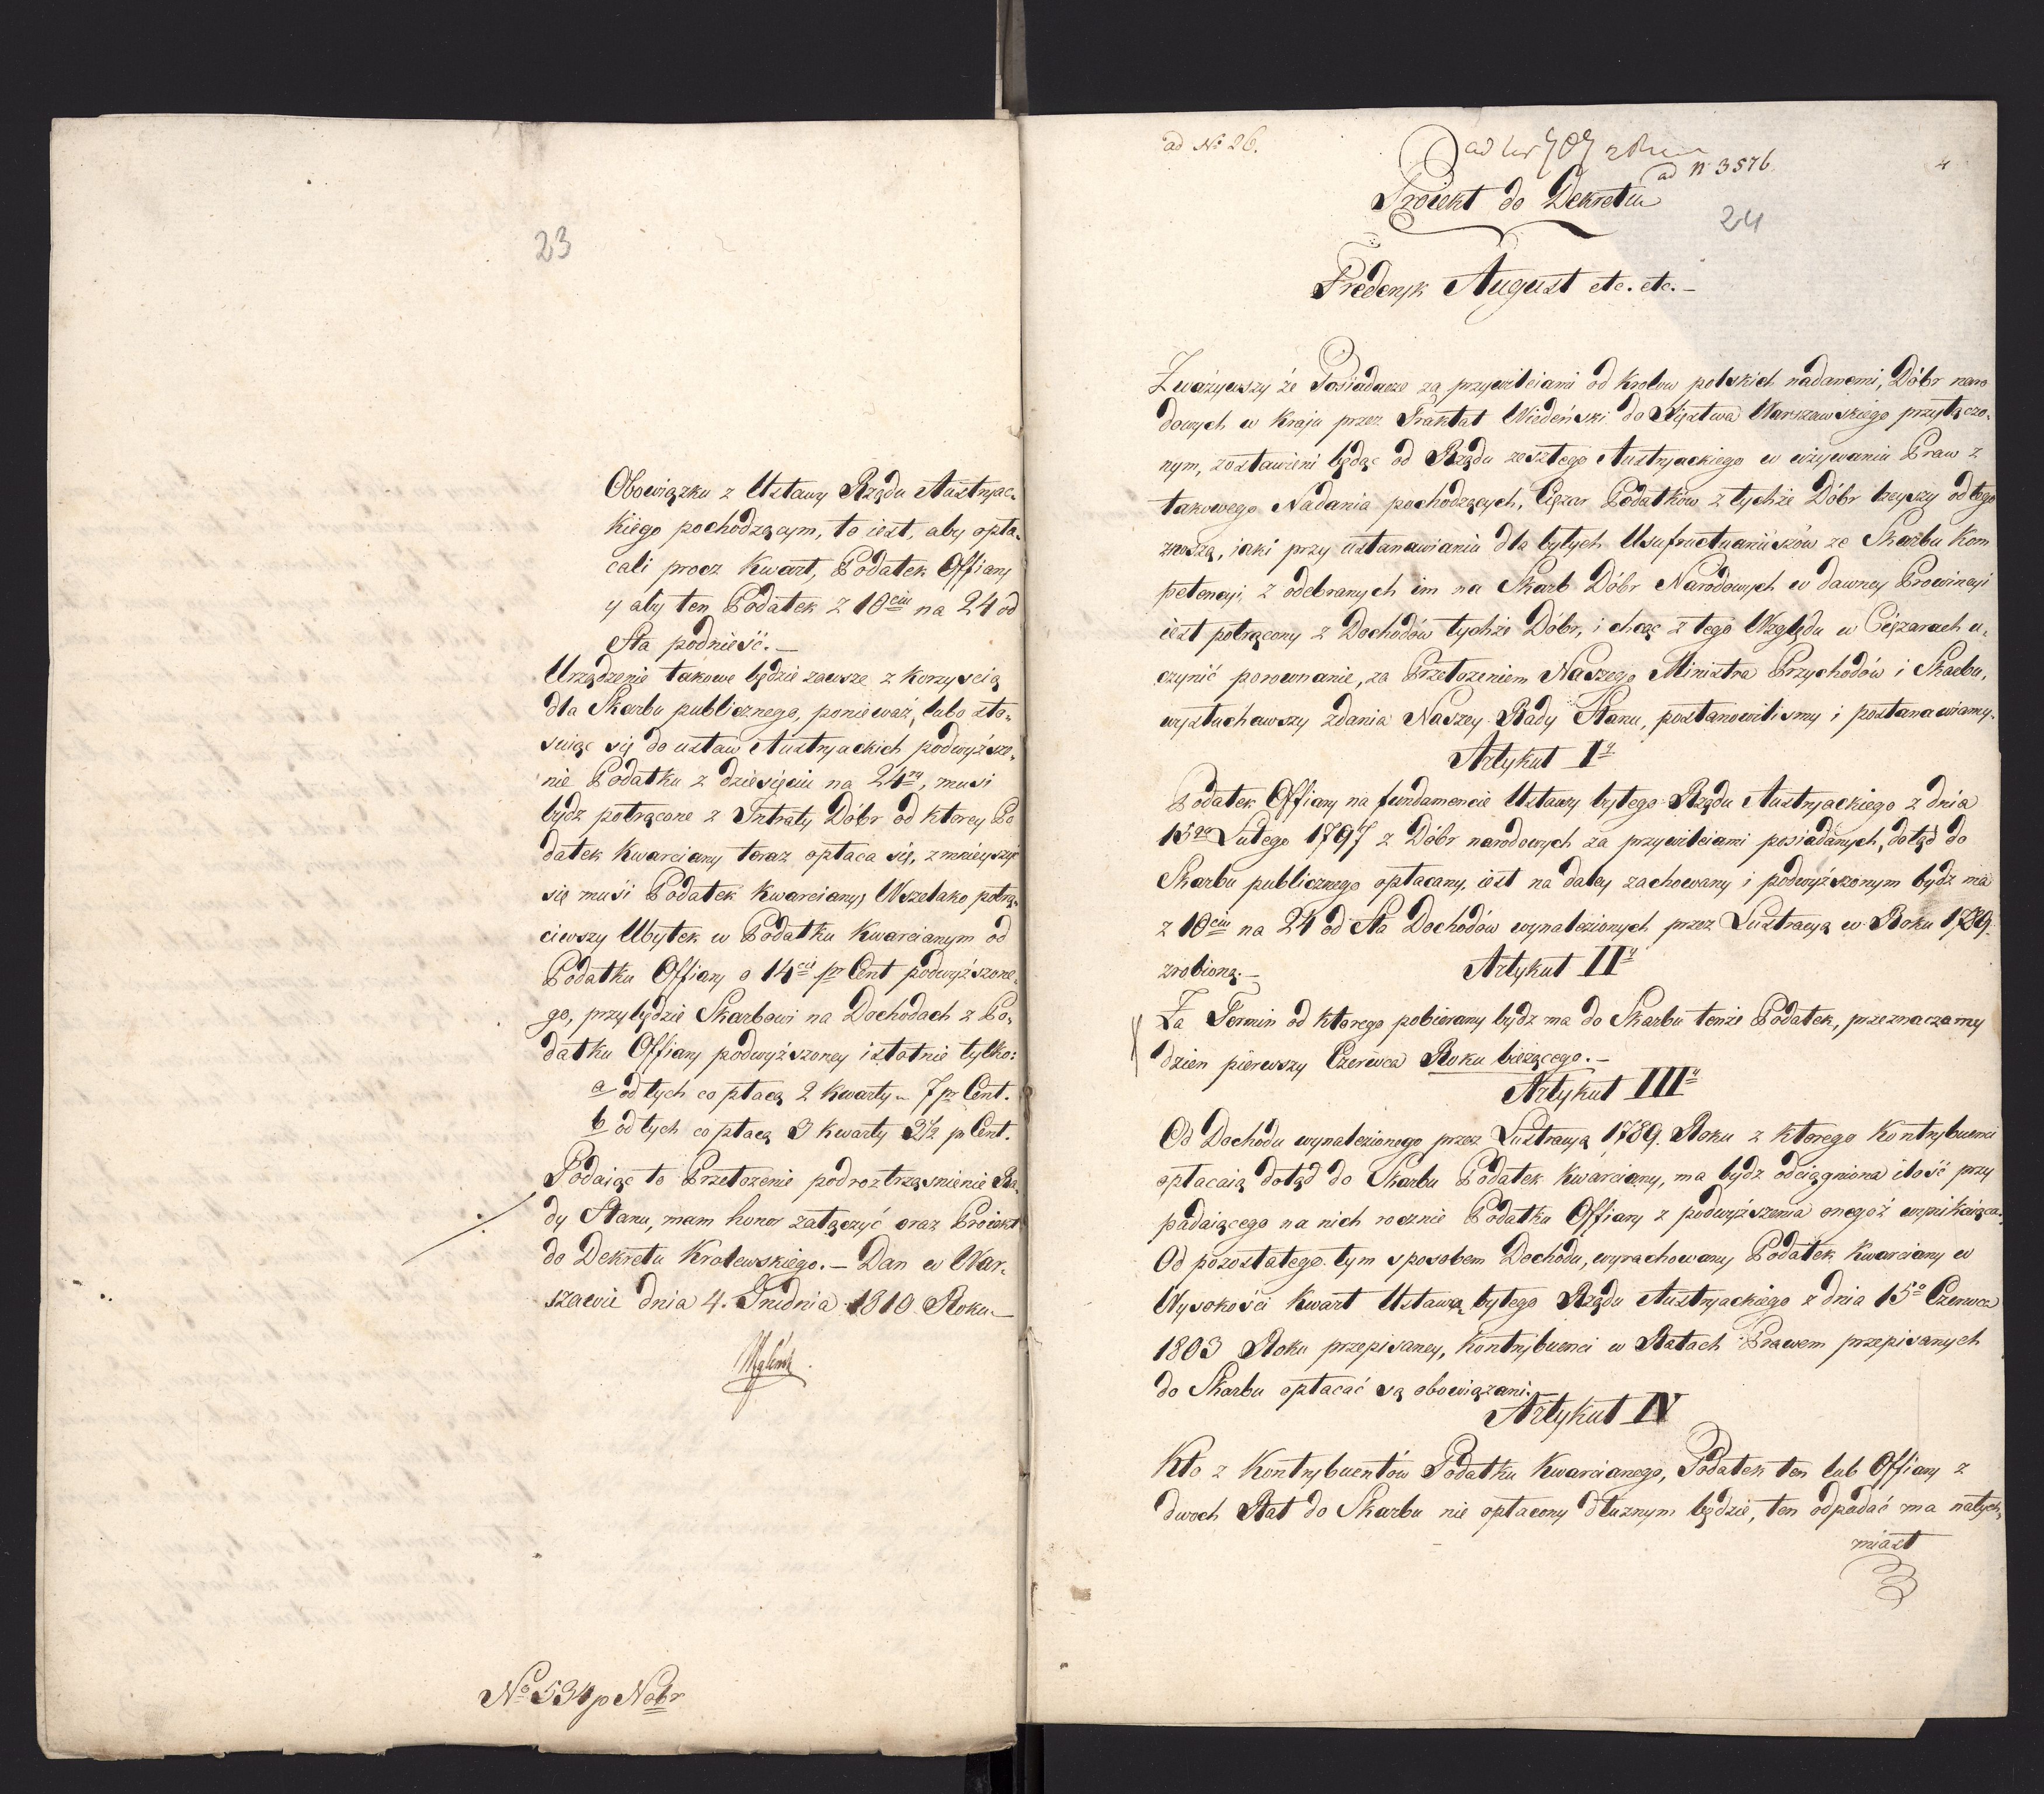 23
Obowiązku z Ustawy Rządu Austryac„
kiego pochodzącym, to iest, aby opła„
cali procz Kwart, Podatek Offiary
y aby ten Podatek z 10ciu na 24 od
Sta podnieść. —
Urządzenie takowe będzie zawsze z korzyscią
dla Skarbu publicznego, ponieważ, lubo sto„
suiąc się do ustaw Austryackich podwyższe„
nie Podatku z dziesięciu na 24ry, musi
bydz potrącone z Intraty Dóbr od ktorey Po
datek Kwarciany teraz opłaca się, zmnieyszyć
się musi Podatek Kwarciany; Wszelako potrą„
ciwszy Ubytek w Podatku Kwarcianym od
Podatku Offiary o 14cie pr Cent podwyższone„
go, przybędzie Skarbowi na Dochodach z Po„
datku Offiary podwyższoney istotnie tylko:
a od tych co płacą 2 Kwarty — 7 pr Cent.
b od tych co płacą 3 Kwarty 3½ pr Cent.
Podaiąc to Przełozenie pod roztrząsnienie Ra„
dy Stanu, mam honor załączyć oraz Proiekt
do Dekretu Krolewskiego. — Dan w War„
szawie dnia 4. Grudnia 1810 Roku —
Węglinski
No 534 p Nobr
ad No 26.
ad N 3576
4
Proiekt do Dekretu
24
Frederyk August etc. etc. —
Zważywszy że Posiadacze za przywileiami od Krolow polskich nadanemi, Dóbr naro
dowych w Kraju przez Traktat Wiedeński do Xięstwa Warszawskiego przyłączo„
nym, zostawieni będąc od Rządu zeszłego Austryackiego w używaniu Praw z
takowego Nadania pochodzących, Cięzar Podatków z tychże Dóbr lzeyszy od tego
znoszą, iaki przy ustanawianiu dla byłych Usufructuariuszów ze Skarbu Kom
petencyi, z odebranych im na Skarb Dóbr Narodowych w dawney Prowincyi
iest potrącony z Dochodów tychże Dóbr, i chcąc z tego Względu w Cięzarach u„
czynić porownanie, za Przełozeniem Naszego Ministra Przychodów i Skarbu,
wysłuchawszy zdania Naszey Rady Stanu, postanowilismy i postanawiamy.
Artykuł Iy
Podatek Offiary na fundamencie Ustawy byłego Rządu Austryackiego z dnia
15go Lutego 1797 z Dóbr narodowych za przywileiami posiadanych, dotąd do
Skarbu publicznego opłacany, iest na daley zachowany i podwyższonym bydz ma
z 10ciu na 24 od Sta Dochodów wynalezionych przez Lustracyą w Roku 1789.
zrobioną. —
Artykuł IIy
Za Termin od ktorego pobierany bydz ma do Skarbu tenże Podatek, przeznaczamy
dzien pierwszy Czerwca Roku bieżącego. —
Artykuł IIIy
Od Dochodu wynalezionego przez Lustracyą 1789. Roku z ktorego Kontrybuenci
opłacaią dotąd do Skarbu Podatek Kwarciany, ma bydz odciągniona ilość przy
padaiącego na nich rocznie Podatku Offiary z podwyższenia onegoż wynikaiąca.
Od pozostałego tym sposobem Dochodu, wyrachowany Podatek Kwarciany w
Wysokości Kwart Ustawą byłego Rządu Austryackiego z dnia 15o Czerwca
1803 Roku przepisaney, Kontrybuenci w Ratach Prawem przepisanych
do Skarbu opłacać są obowiązani. —
Artykuł IV
Kto z Kontrybuentów Podatku Kwarcianego, Podatek ten lub Offiary z
dwoch Rat do Skarbu nie opłacony dłuznym będzie, ten odpadać ma natych„
miast